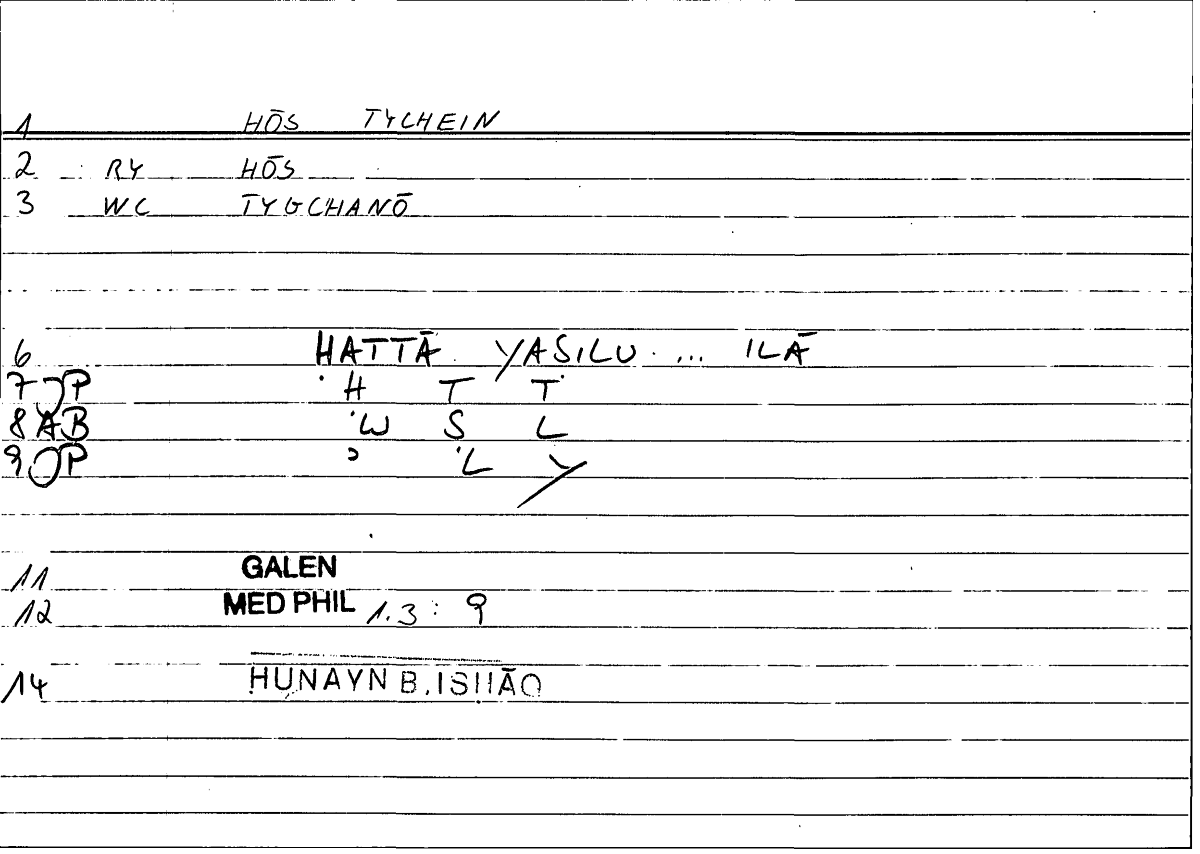 1 HŌS TYCHEIN
2 RY HŌS
3 WC TYGCHANŌ
6 HATTĀ YASILU ... ILĀ
7 JP H T T
8 AB W S L
9 JP ʾ L Y
11 GALEN
12 MED PHIL 1.3 : 9
14 HUNAYN B. ISHĀQ